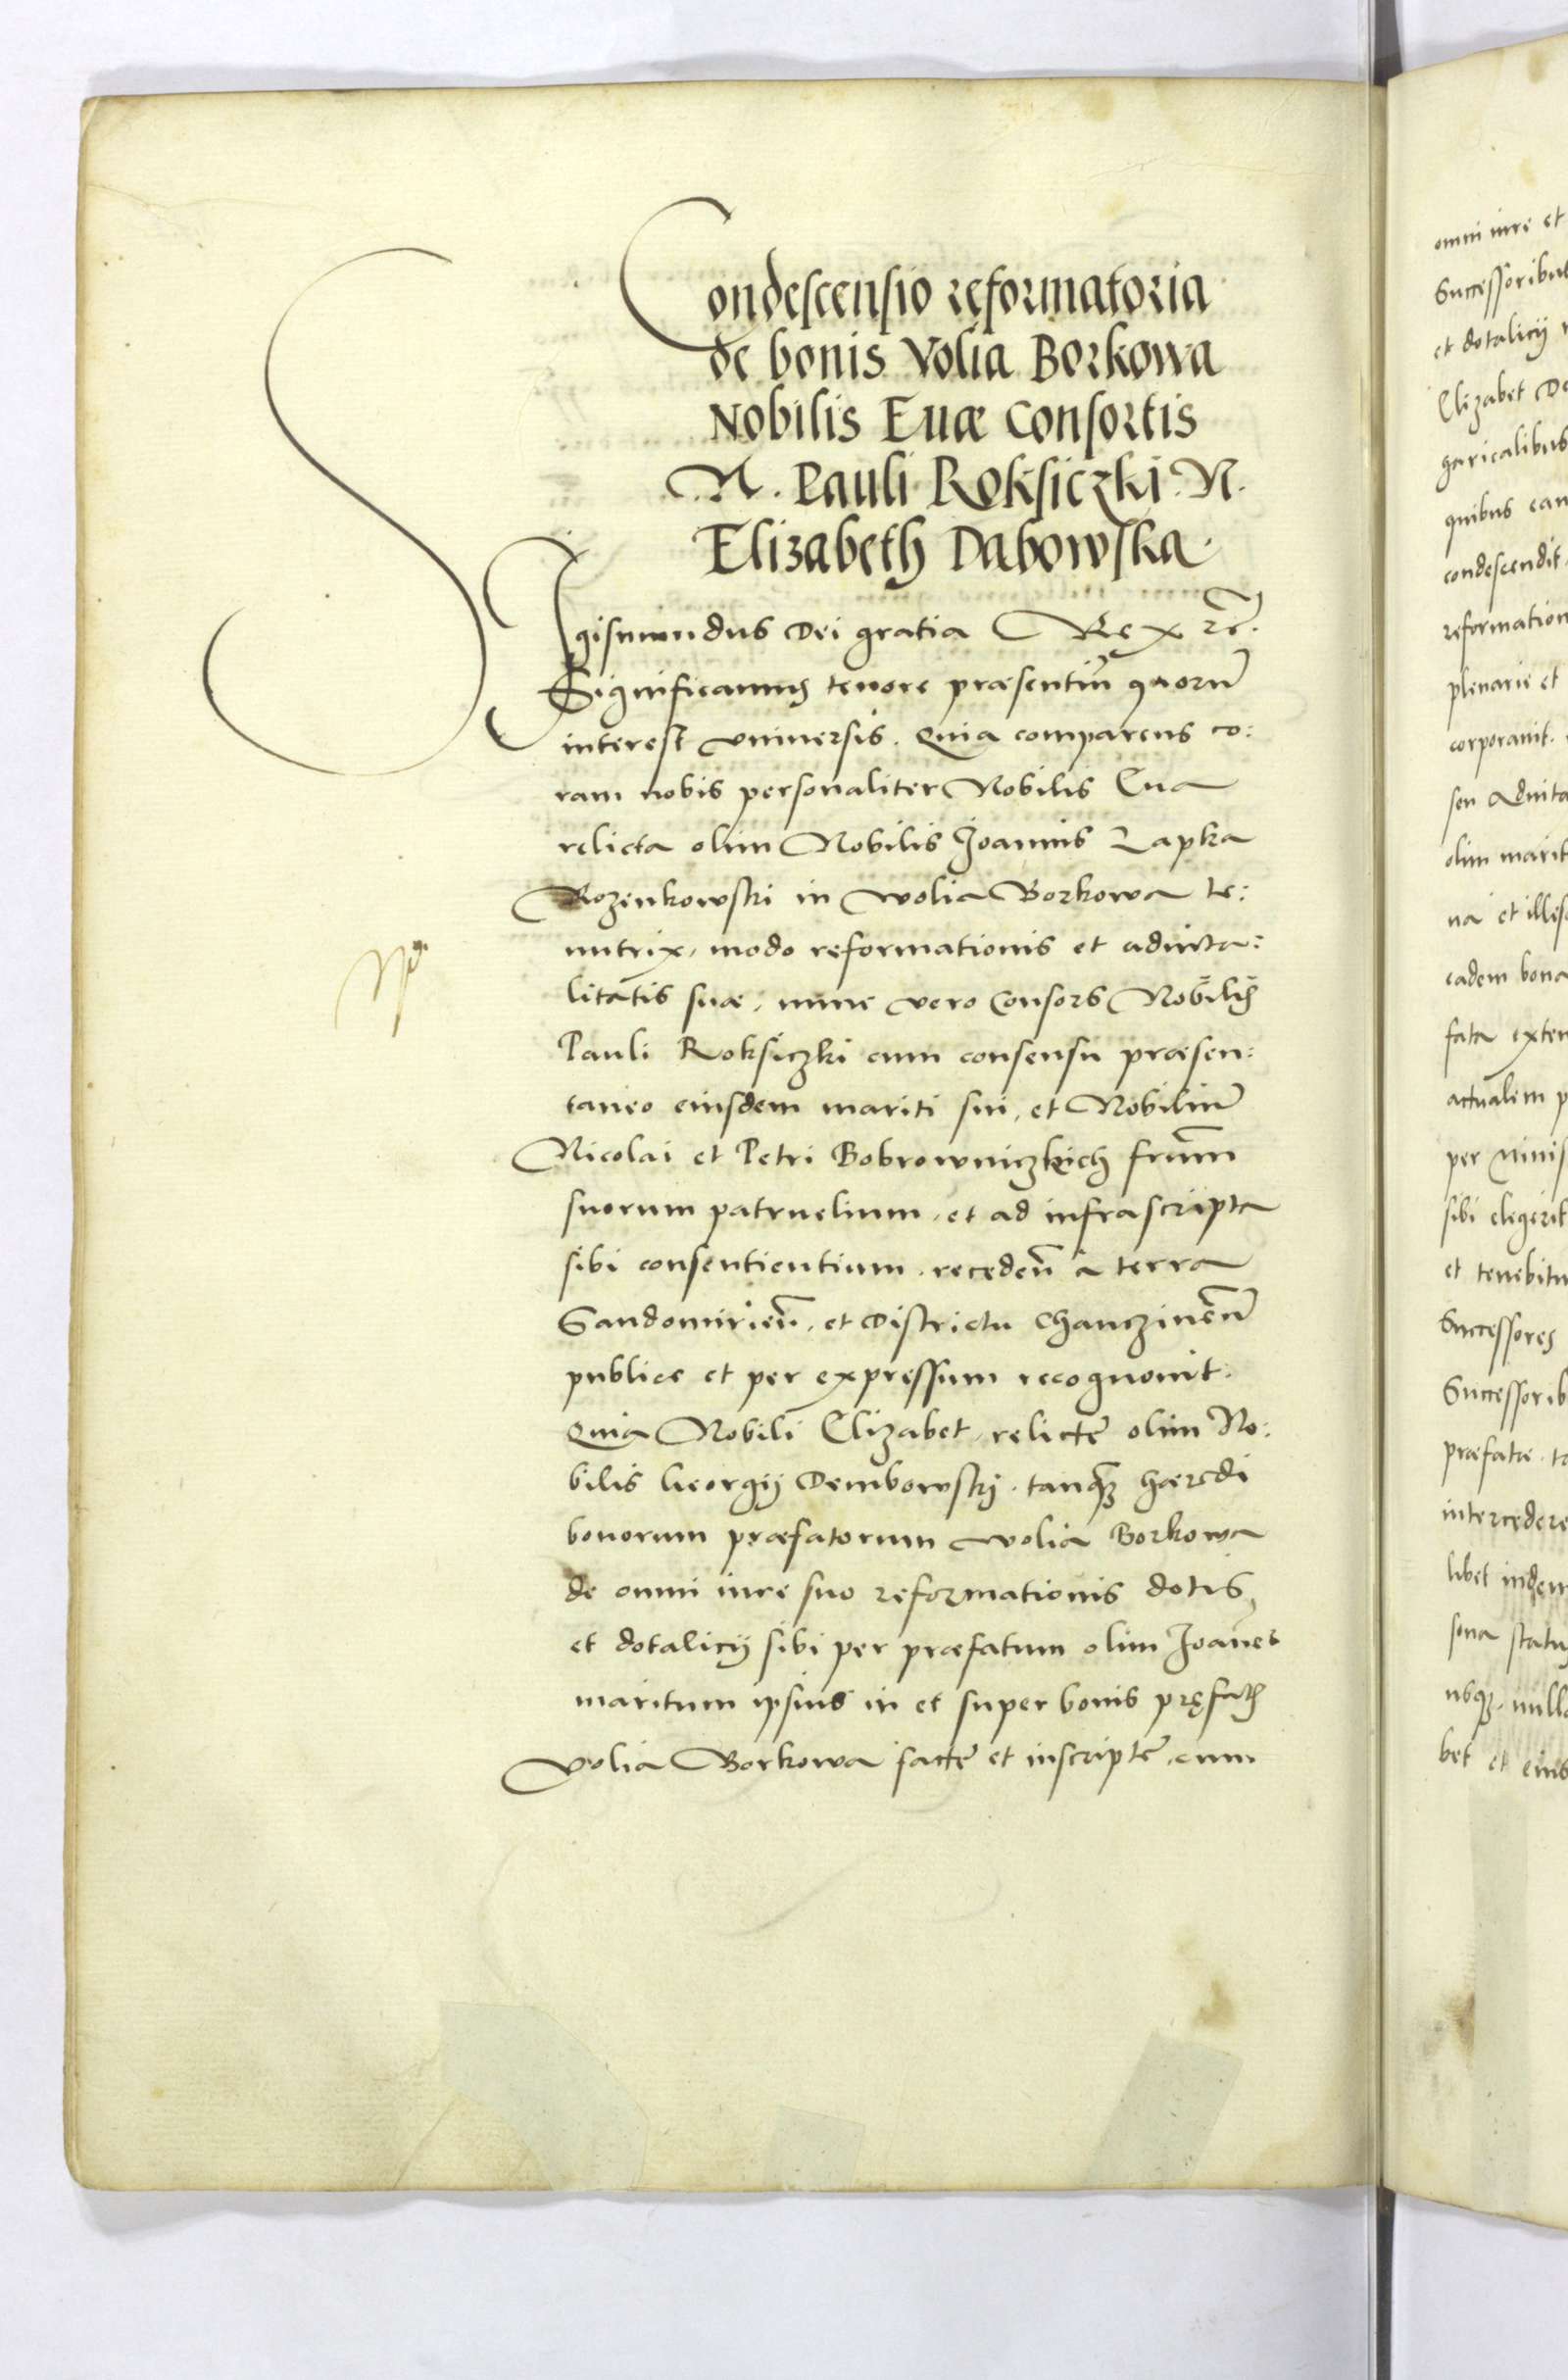 Condescensio reformatoria
de bonis Volia Borkowa
Nobilis Euæ Consortis
N. Pauli Roksiczki. N.
Elizabeth Dabowska.
Sigismundus Dei gratia Rex rc̃.
Significamus tenore præsentiũ quorũ
interest vniuersis. Quia comparens co:
ram nobis personaliter Nobilis Eua
relicta olim Nobilis Joannis Lapka
Rozenkowski in Wolia Borkowa te:
nutrix, modo reformationis et aduita:
litatis suæ, nunc vero Consors Nobilis
Pauli Roksiczki cum consensu præsen:
taneo eiusdem mariti sui, et Nobiliũ
Nicolai et Petri Bobrowniczkich frũm
suorum patruelium, et ad infrascripta
sibi consentientium. recedeñ a terra
Sandomirieñ, et Districtu Chanczineñ
publice et per expressum recognouit.
Quia Nobili Elizabet, relictę olim No:
bilis Georgij Dembowskj. tanq̃ hæredi
bonorum præfatorum Wolia Borkowa
de omni iure suo reformationis dotis,
et dotalicij sibi per præfatum olim Joañem
maritum ipsius in et super bonis pręfatis
Volia Borkowa factę et inscriptę, cum
omni iure et
Successoribus
et dotalicij
Elizabet De
garicalibus
quibus eam
condescendit.
reformation
plenarie et
corporauit.
seu Aduita
olim marit
na et illes
eadem bona
fata exten
actualem p
per Minis
sibi elegerit
et tenebitu
Successores
Successorib
præfatæ. ta
intercedere
libet indem
sona statu
usq. nulla
bet et eius